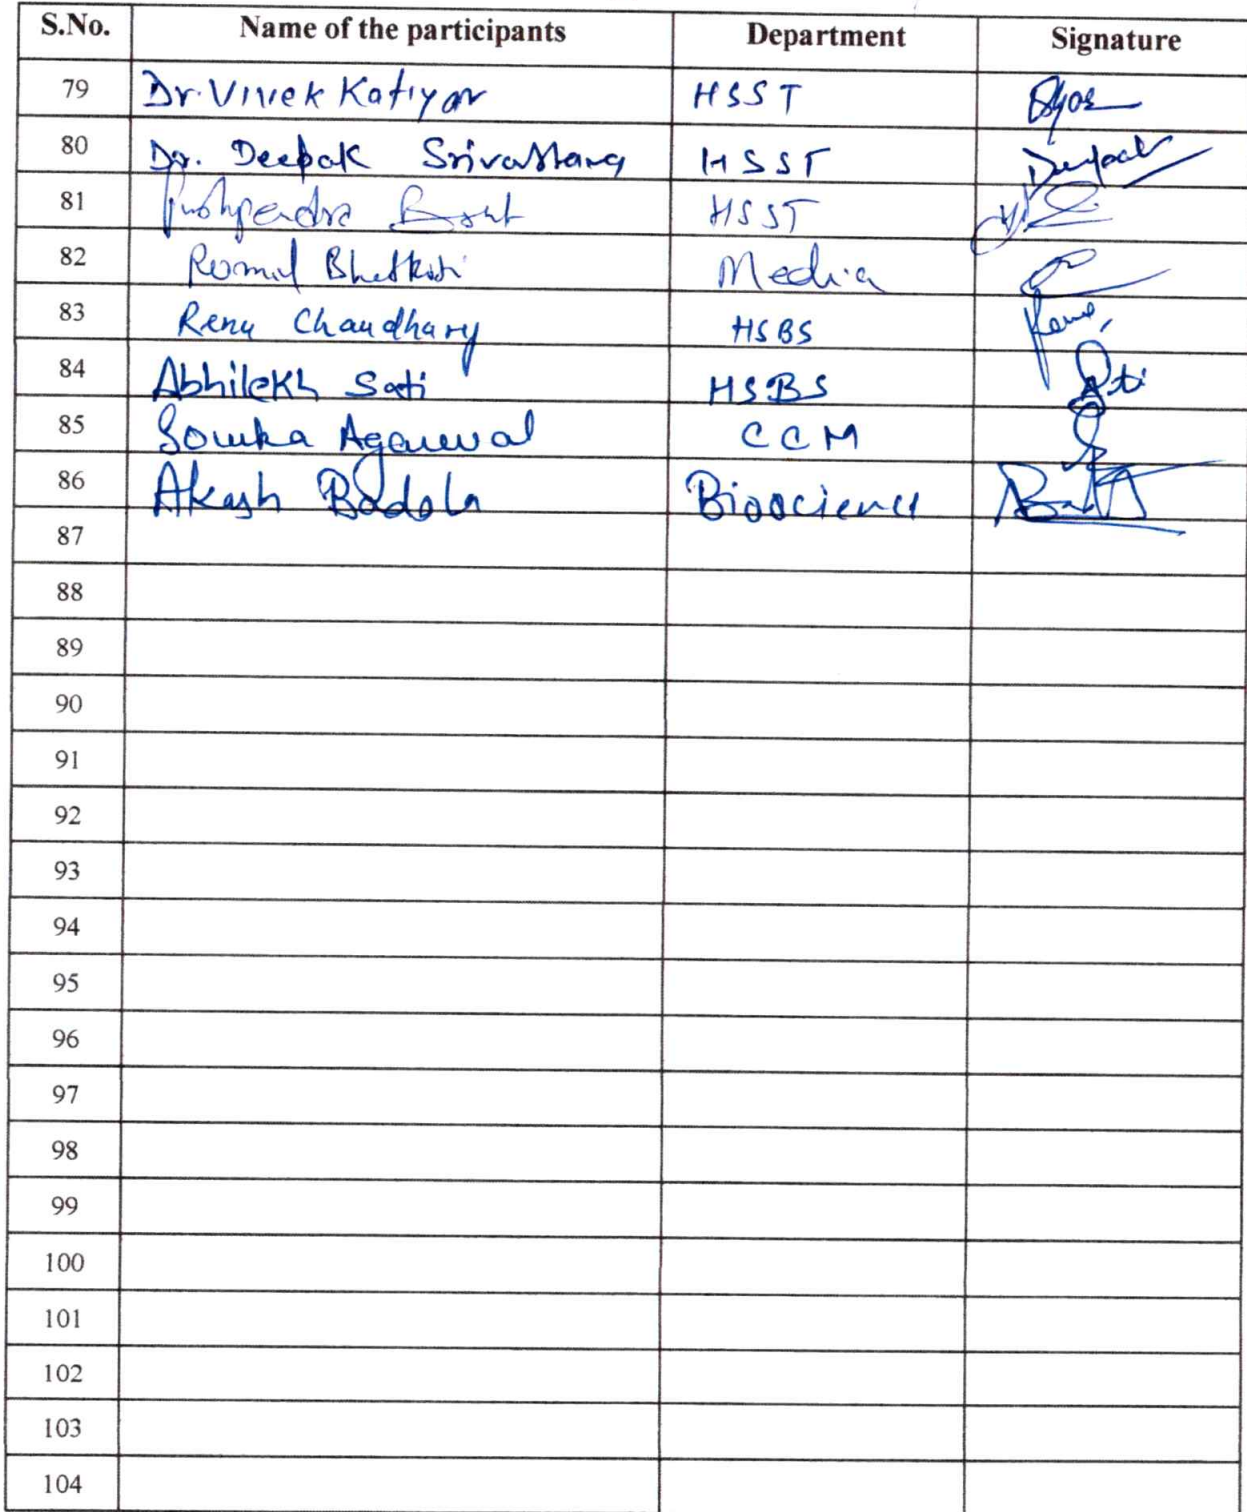 S.No. Name of the participants Department Signature
79 Dr. Vivek Katiyar HSST
80 Dr. Deepak Srivastava HSST Deepak
81 Pushpendra HSST
82 Media
83 Renu Chaudhary HSBS Renu
84 Abhilekh Sati HSBS Sati
85 Agarwal CCM
86 Akash Badola Bioscience
87
88
89
90
91
92
93
94
95
96
97
98
99
100
101
102
103
104